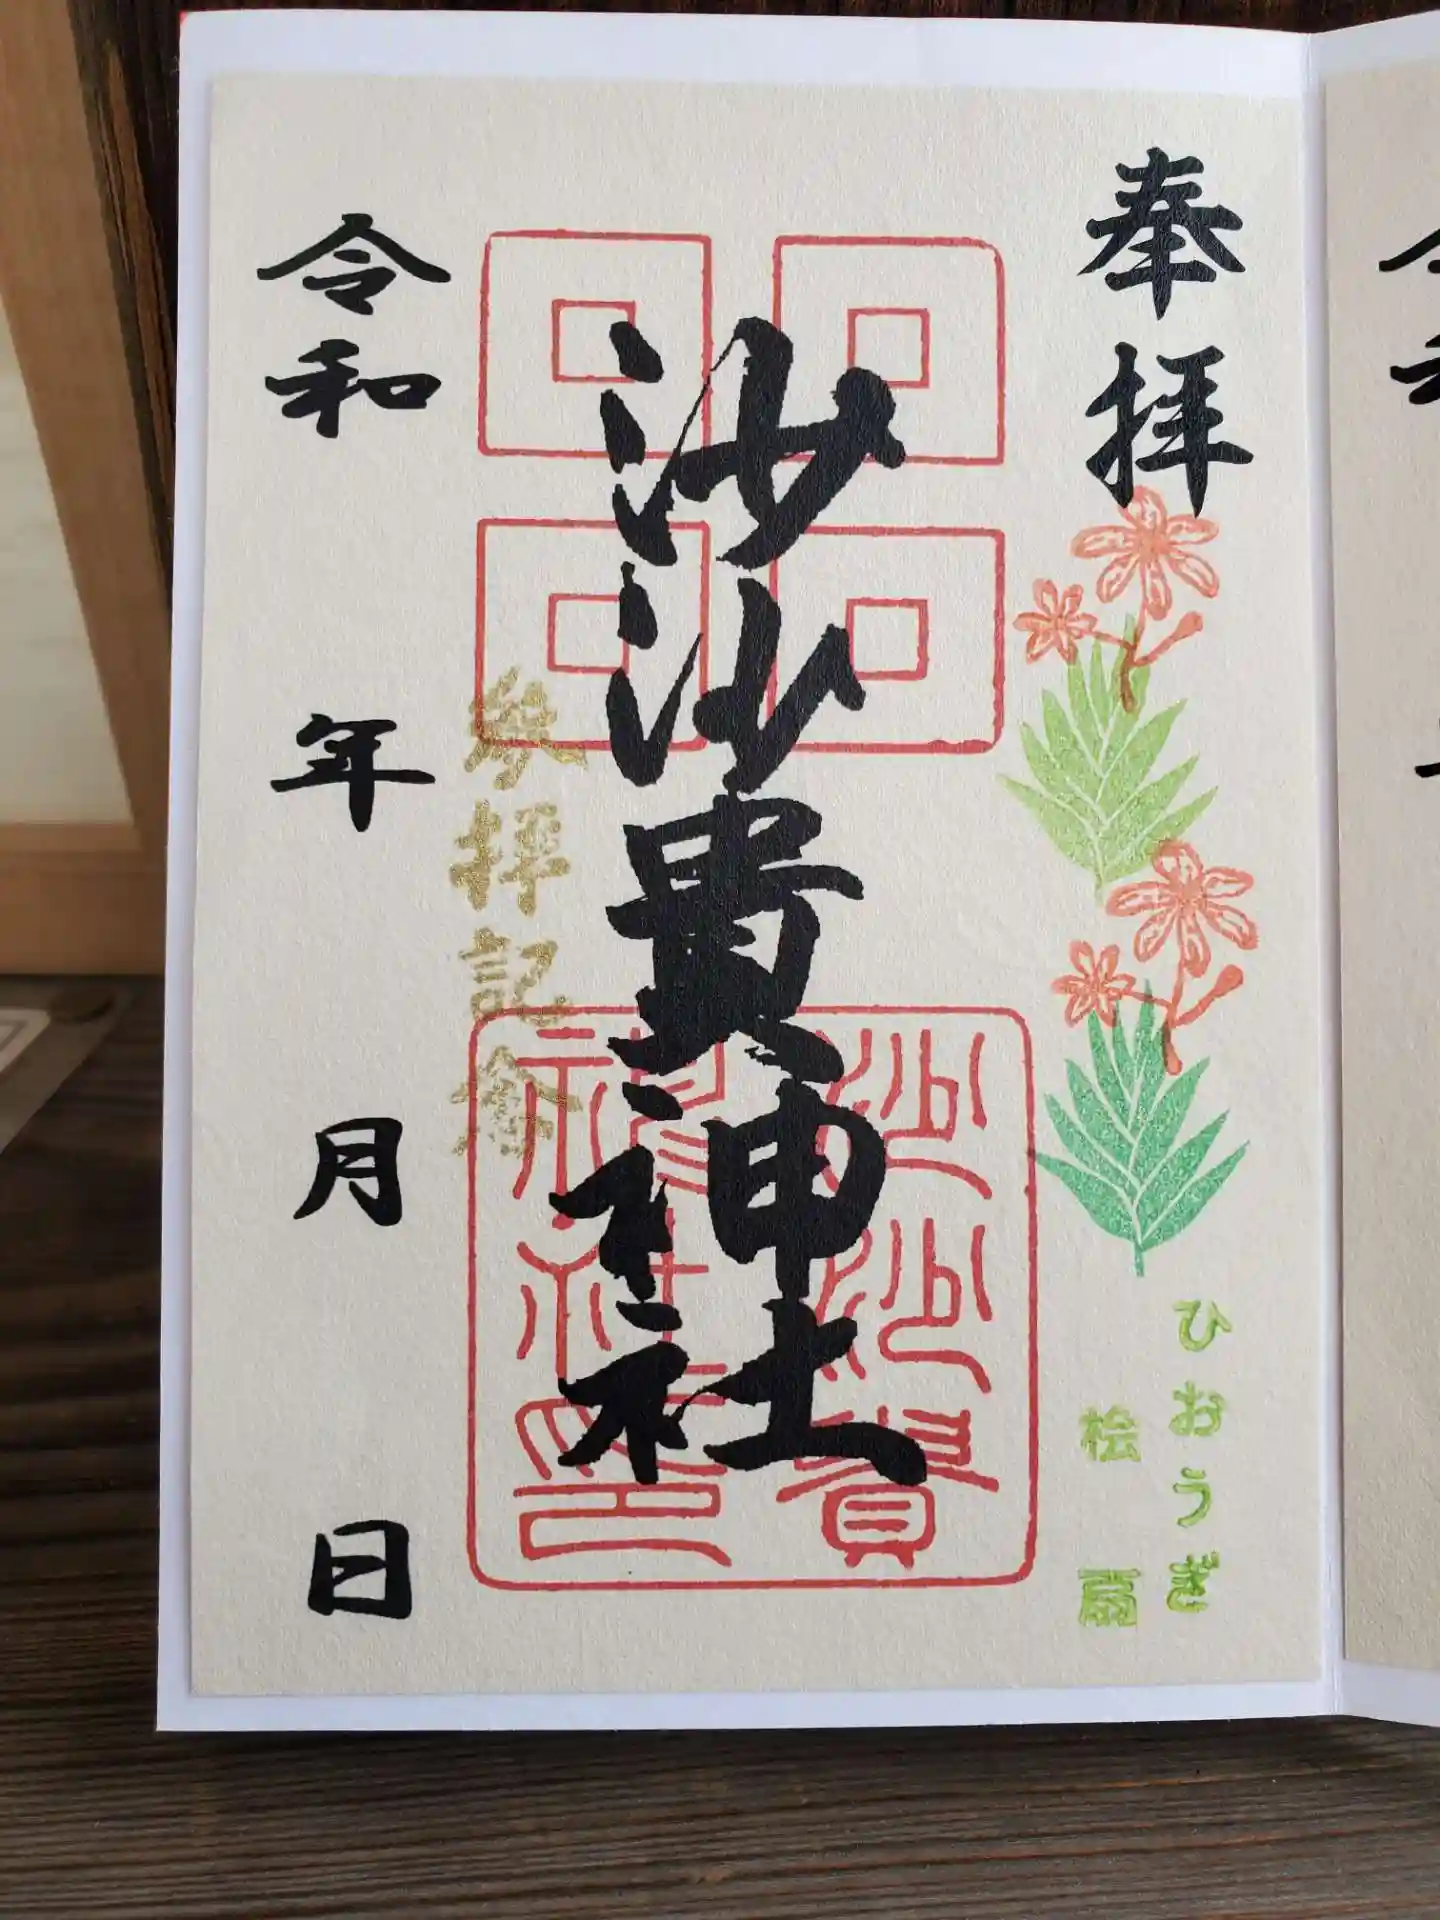 奉拝
ひおうぎ
桧扇
沙沙貴神社
沙沙貴
神社印
参拝記念
令和 年 月 日